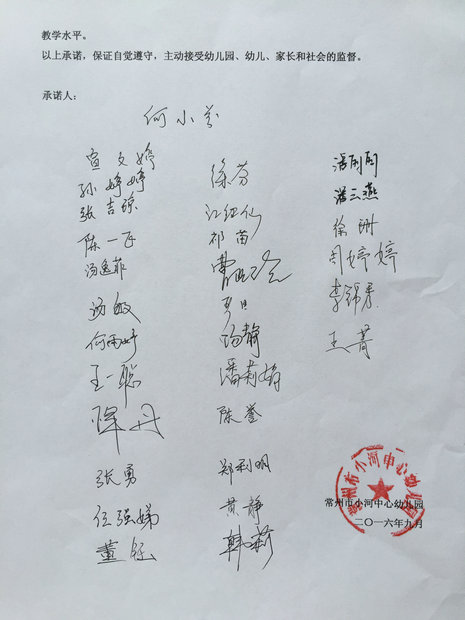 教学水平。
以上承诺，保证自觉遵守，主动接受幼儿园、幼儿、家长和社会的监督。
承诺人：
何小芬
宣文婷
孙婷婷
张吉琼
陈一飞
汤逸菲
汤敏
何雨婷
王一聪
陈丹
张勇
任强娣
董钰
徐芬
江红仙
祁苗
杨静
潘莉娟
陈誉
郑利明
黄静
韩莉
潘云燕
徐珊
周婷婷
李锦东
王菁
常州市小河中心幼儿园
常州市小河中心幼儿园
二〇一六年九月